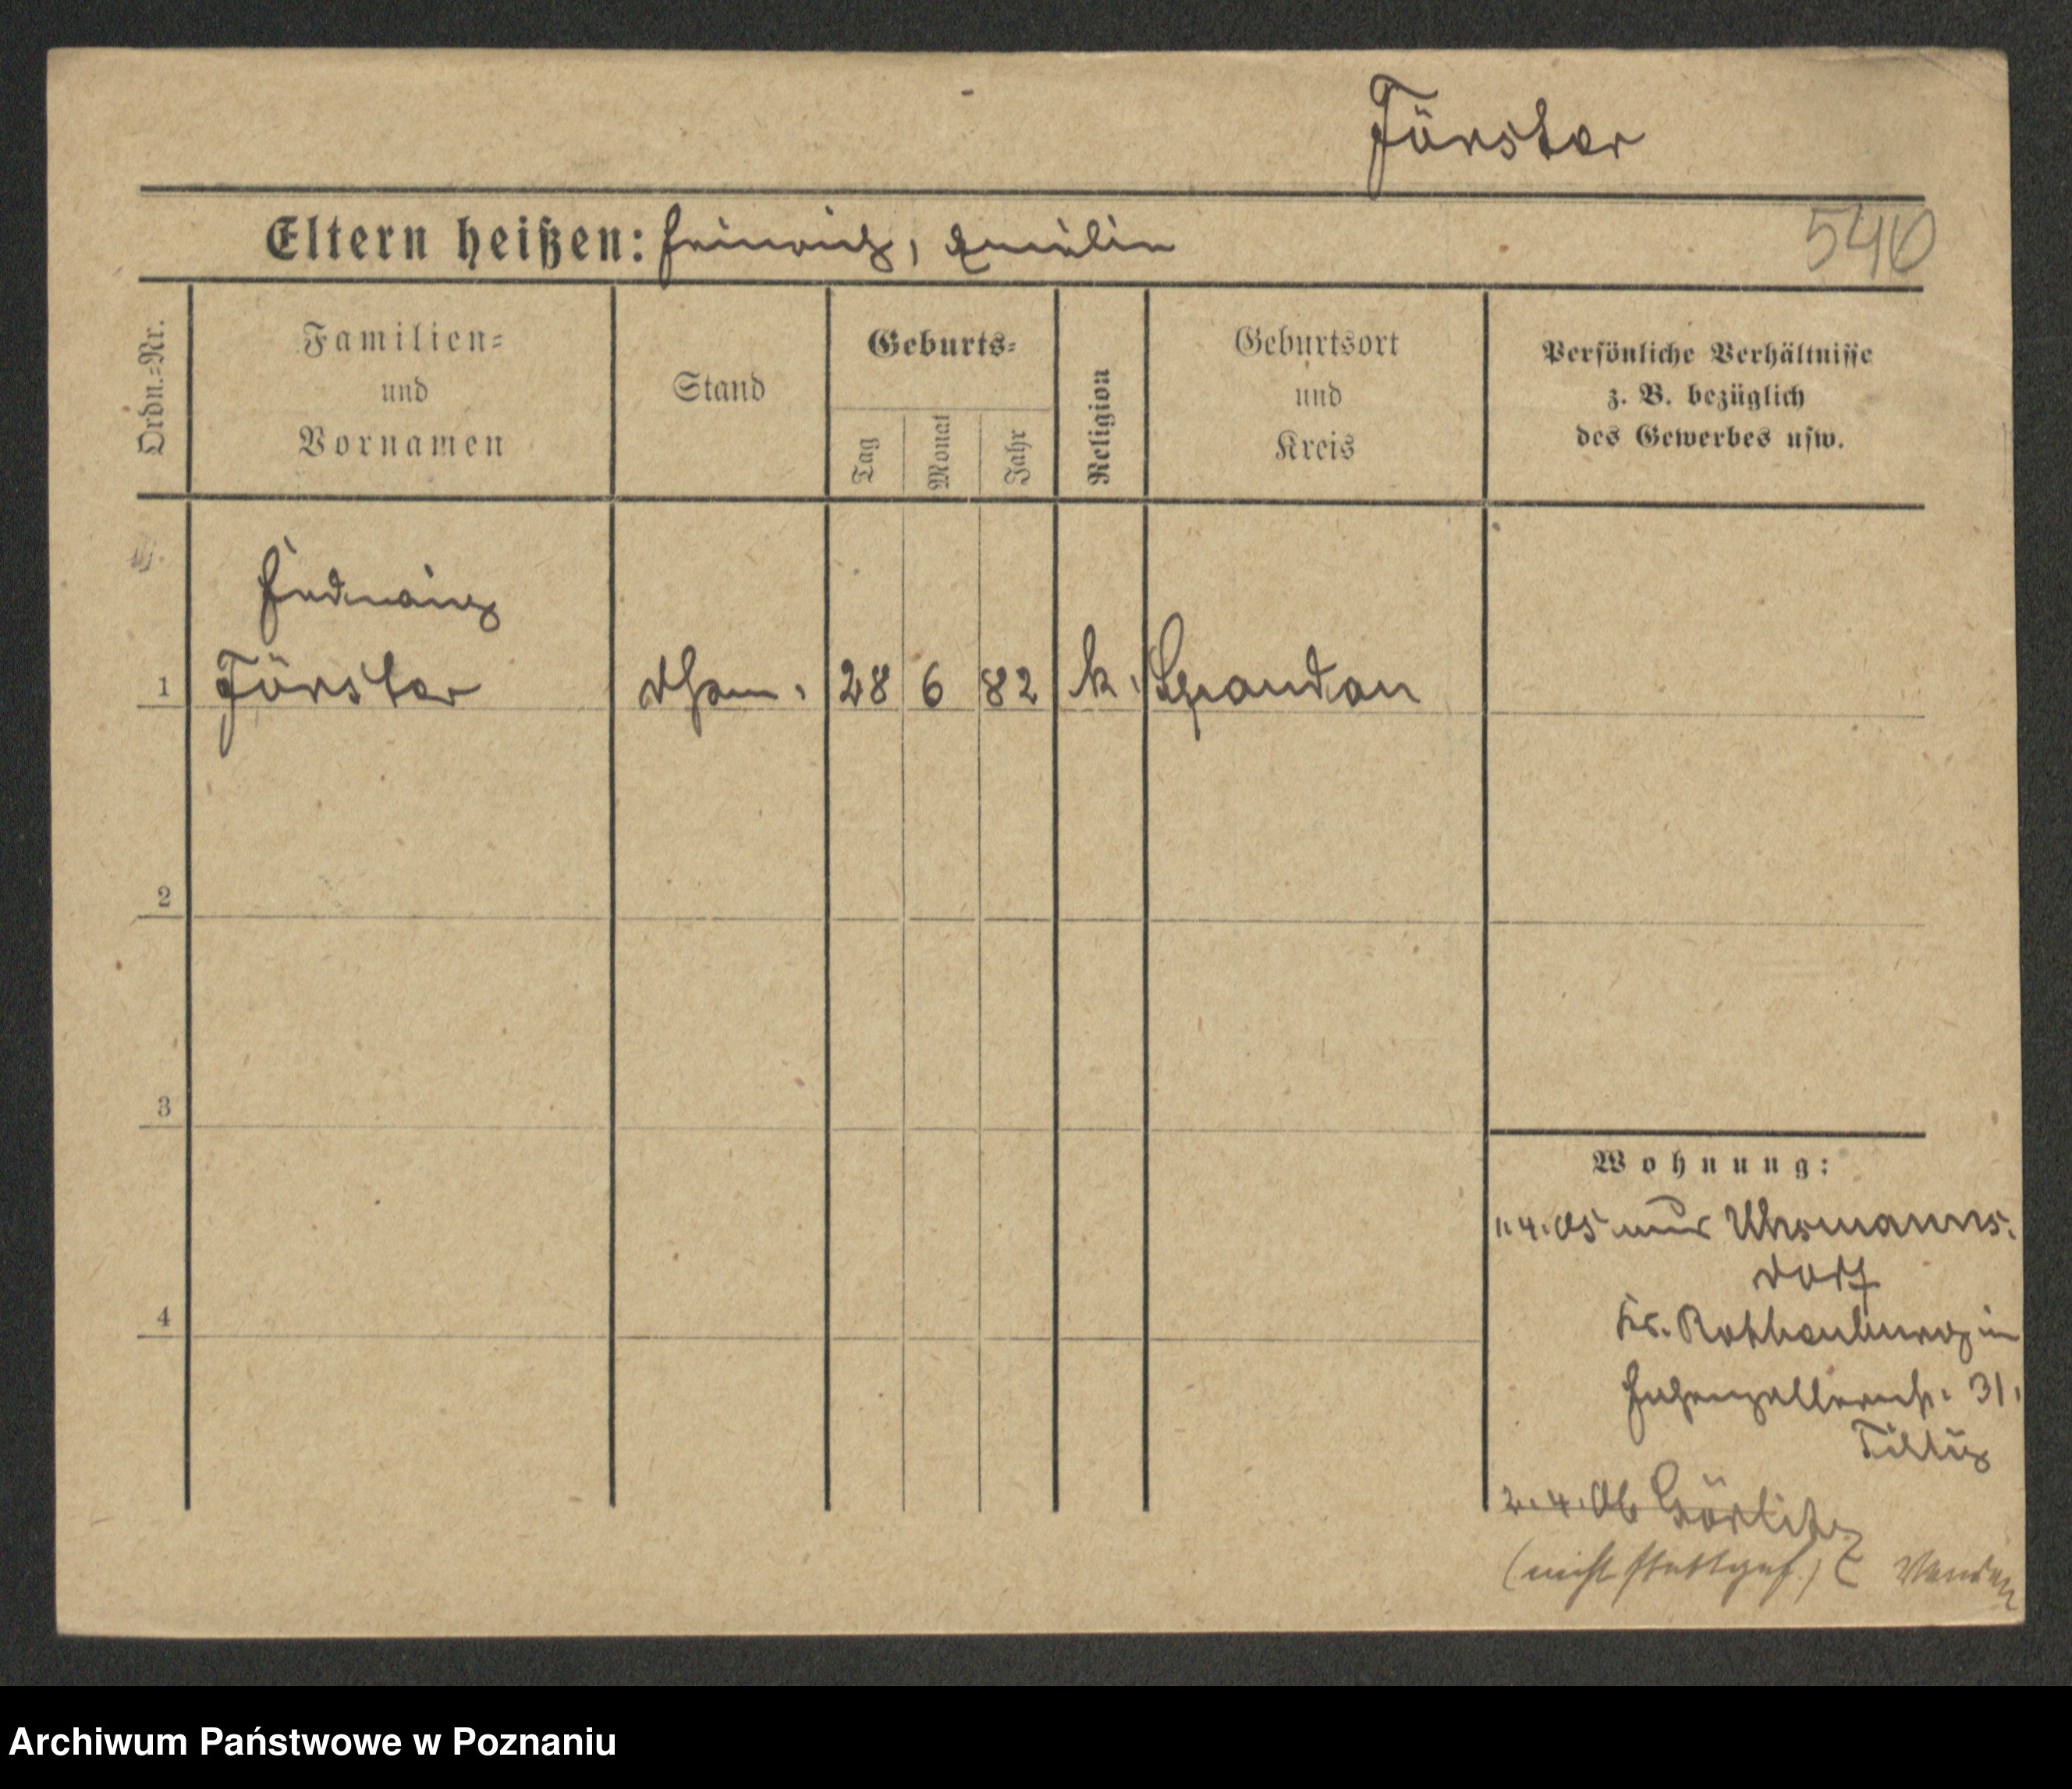 Förster
Eltern heißen: Heinrich, Emilie
540
Ordn.=Nr.
Familien=
und
Vornamen
Stand
Geburts=
Tag
Monat
Jahr
Religion
Geburtsort
und
Kreis
Persönliche Verhältnisse
z. B. bezüglich
des Gewerbes usw.
Hedwig
1 Förster 28 6 82 k. Spandau
2
3
4
Wohnung:
1.4.05 Uhsmanns-
dorf
Kr. Rothenburg in
Hohenzollernstr. 31.
2.4.06 Görlitz
(nicht
Archiwum Państwowe w Poznaniu